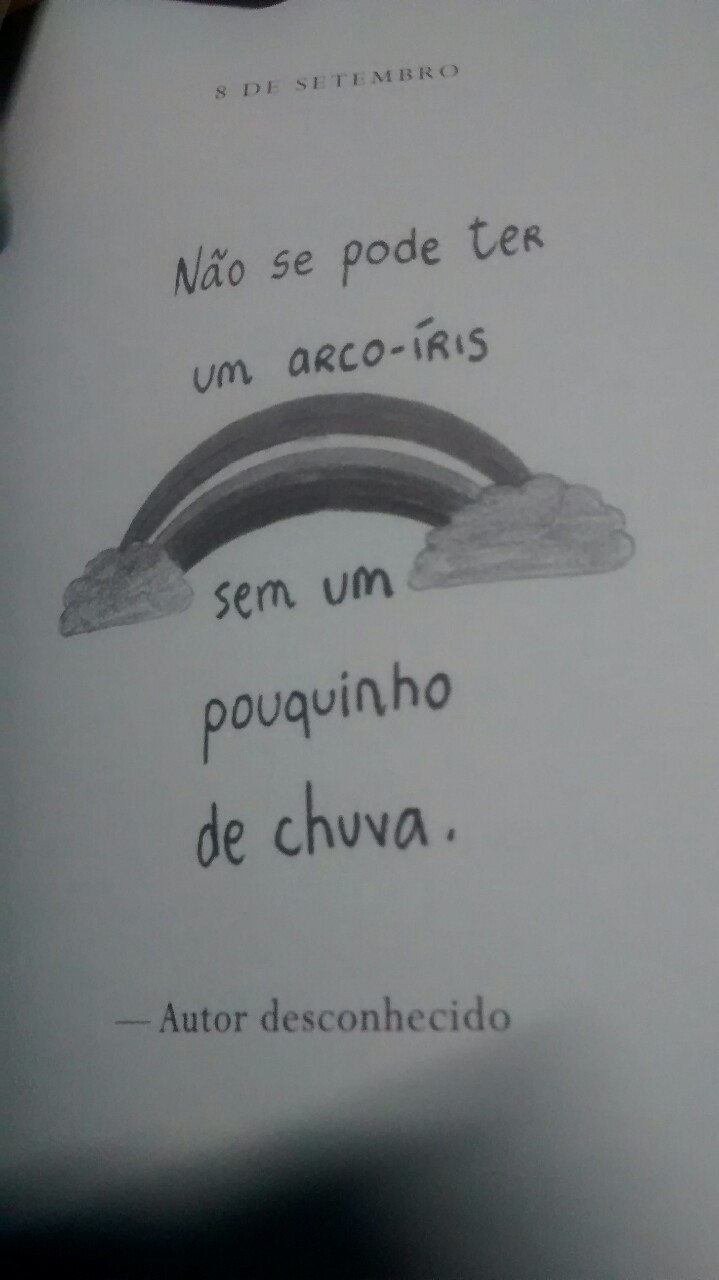 8 DE SETEMBRO
Não se pode ter
um arco-íris
sem um
pouquinho
de chuva.
— Autor desconhecido